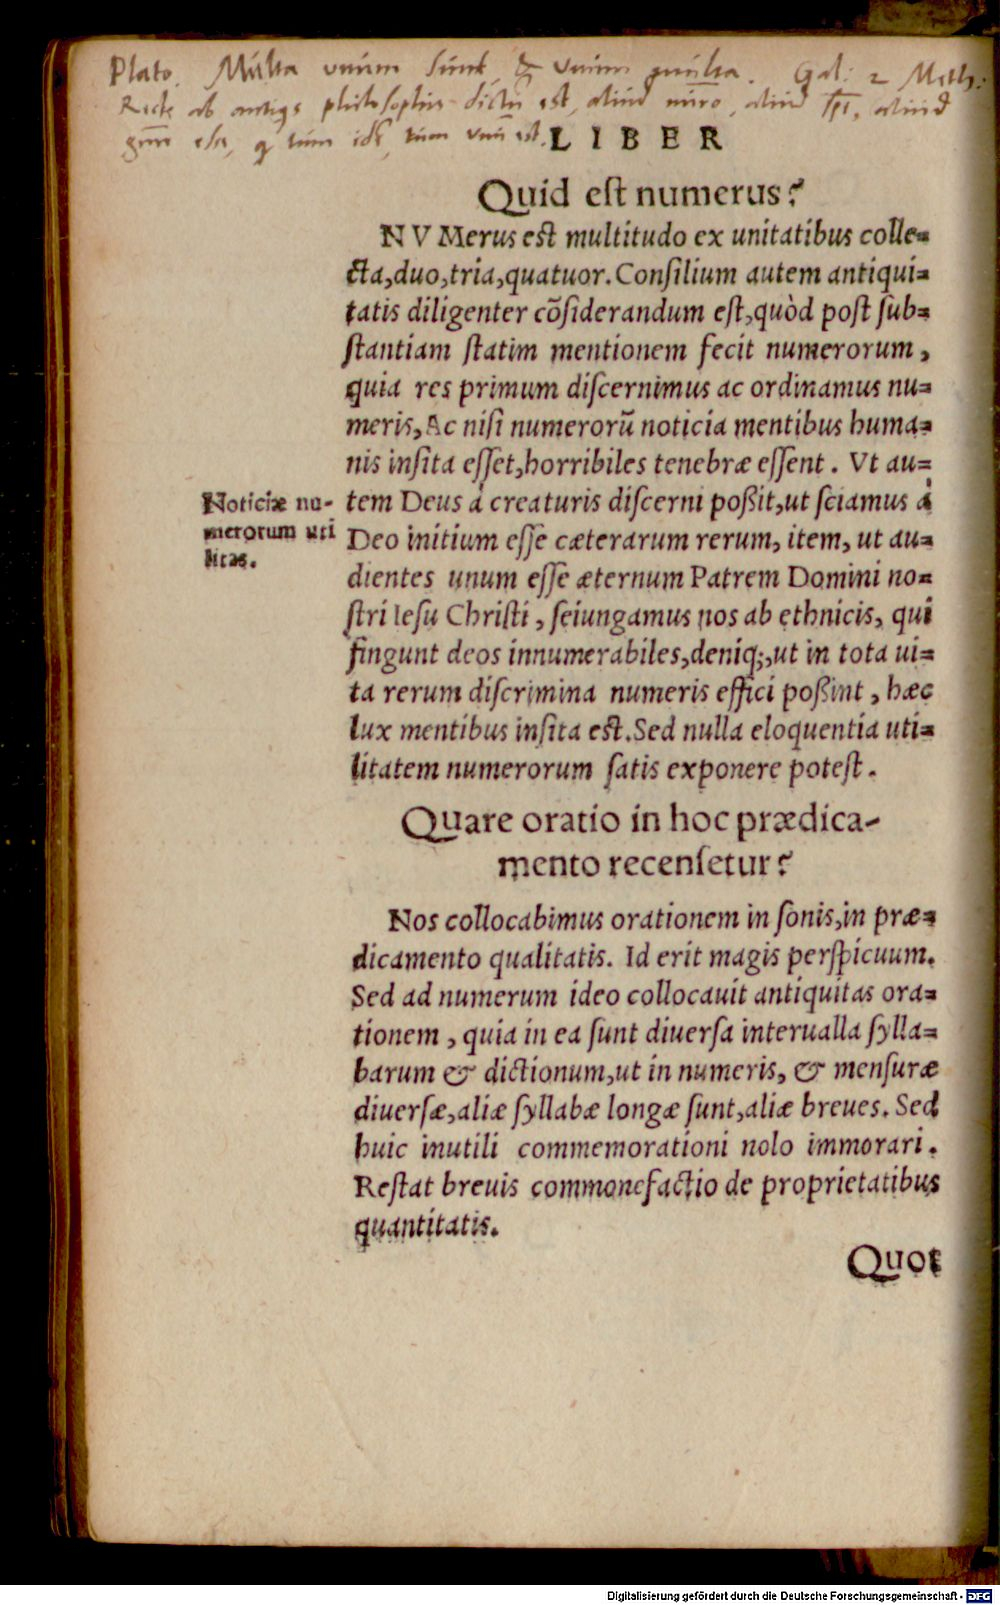 Plato. Multa unum sunt, & unum multa. Gal: 2 Meth:
Recte ab antiqs philosophis dictũ est, aliud nũro, aliud spẽ, aliud
gñe esse, q tum idẽ, tum unũ est.
LIBER
Quid est numerus?
NVMerus est multitudo ex unitatibus colle=
cta, duo, tria, quatuor. Consilium autem antiqui=
tatis diligenter cõsiderandum est, quòd post sub=
stantiam statim mentionem fecit numerorum,
quia res primum discernimus ac ordinamus nu=
meris, Ac nisi numerorũ noticia mentibus huma=
nis insita esset, horribiles tenebræ essent. Vt au=
Noticiæ nu-
merorum uti
litas.
tem Deus à creaturis discerni poßit, ut sciamus à
Deo initium esse cæterarum rerum, item, ut au=
dientes unum esse æternum Patrem Domini no=
stri Iesu Christi, seiungamus nos ab ethnicis, qui
fingunt deos innumerabiles, deniq;, ut in tota ui=
ta rerum discrimina numeris effici poßint, hæc
lux mentibus insita est. Sed nulla eloquentia uti=
litatem numerorum satis exponere potest.
Quare oratio in hoc prædica-
mento recensetur?
Nos collocabimus orationem in sonis, in præ=
dicamento qualitatis. Id erit magis perspicuum.
Sed ad numerum ideo collocauit antiquitas ora=
tionem, quia in ea sunt diuersa interualla sylla=
barum & dictionum, ut in numeris, & mensuræ
diuersæ, aliæ syllabæ longæ sunt, aliæ breues. Sed
huic inutili commemorationi nolo immorari.
Restat breuis commonefactio de proprietatibus
quantitatis.
Quot
Digitalisierung gefördert durch die Deutsche Forschungsgemeinschaft - DFG